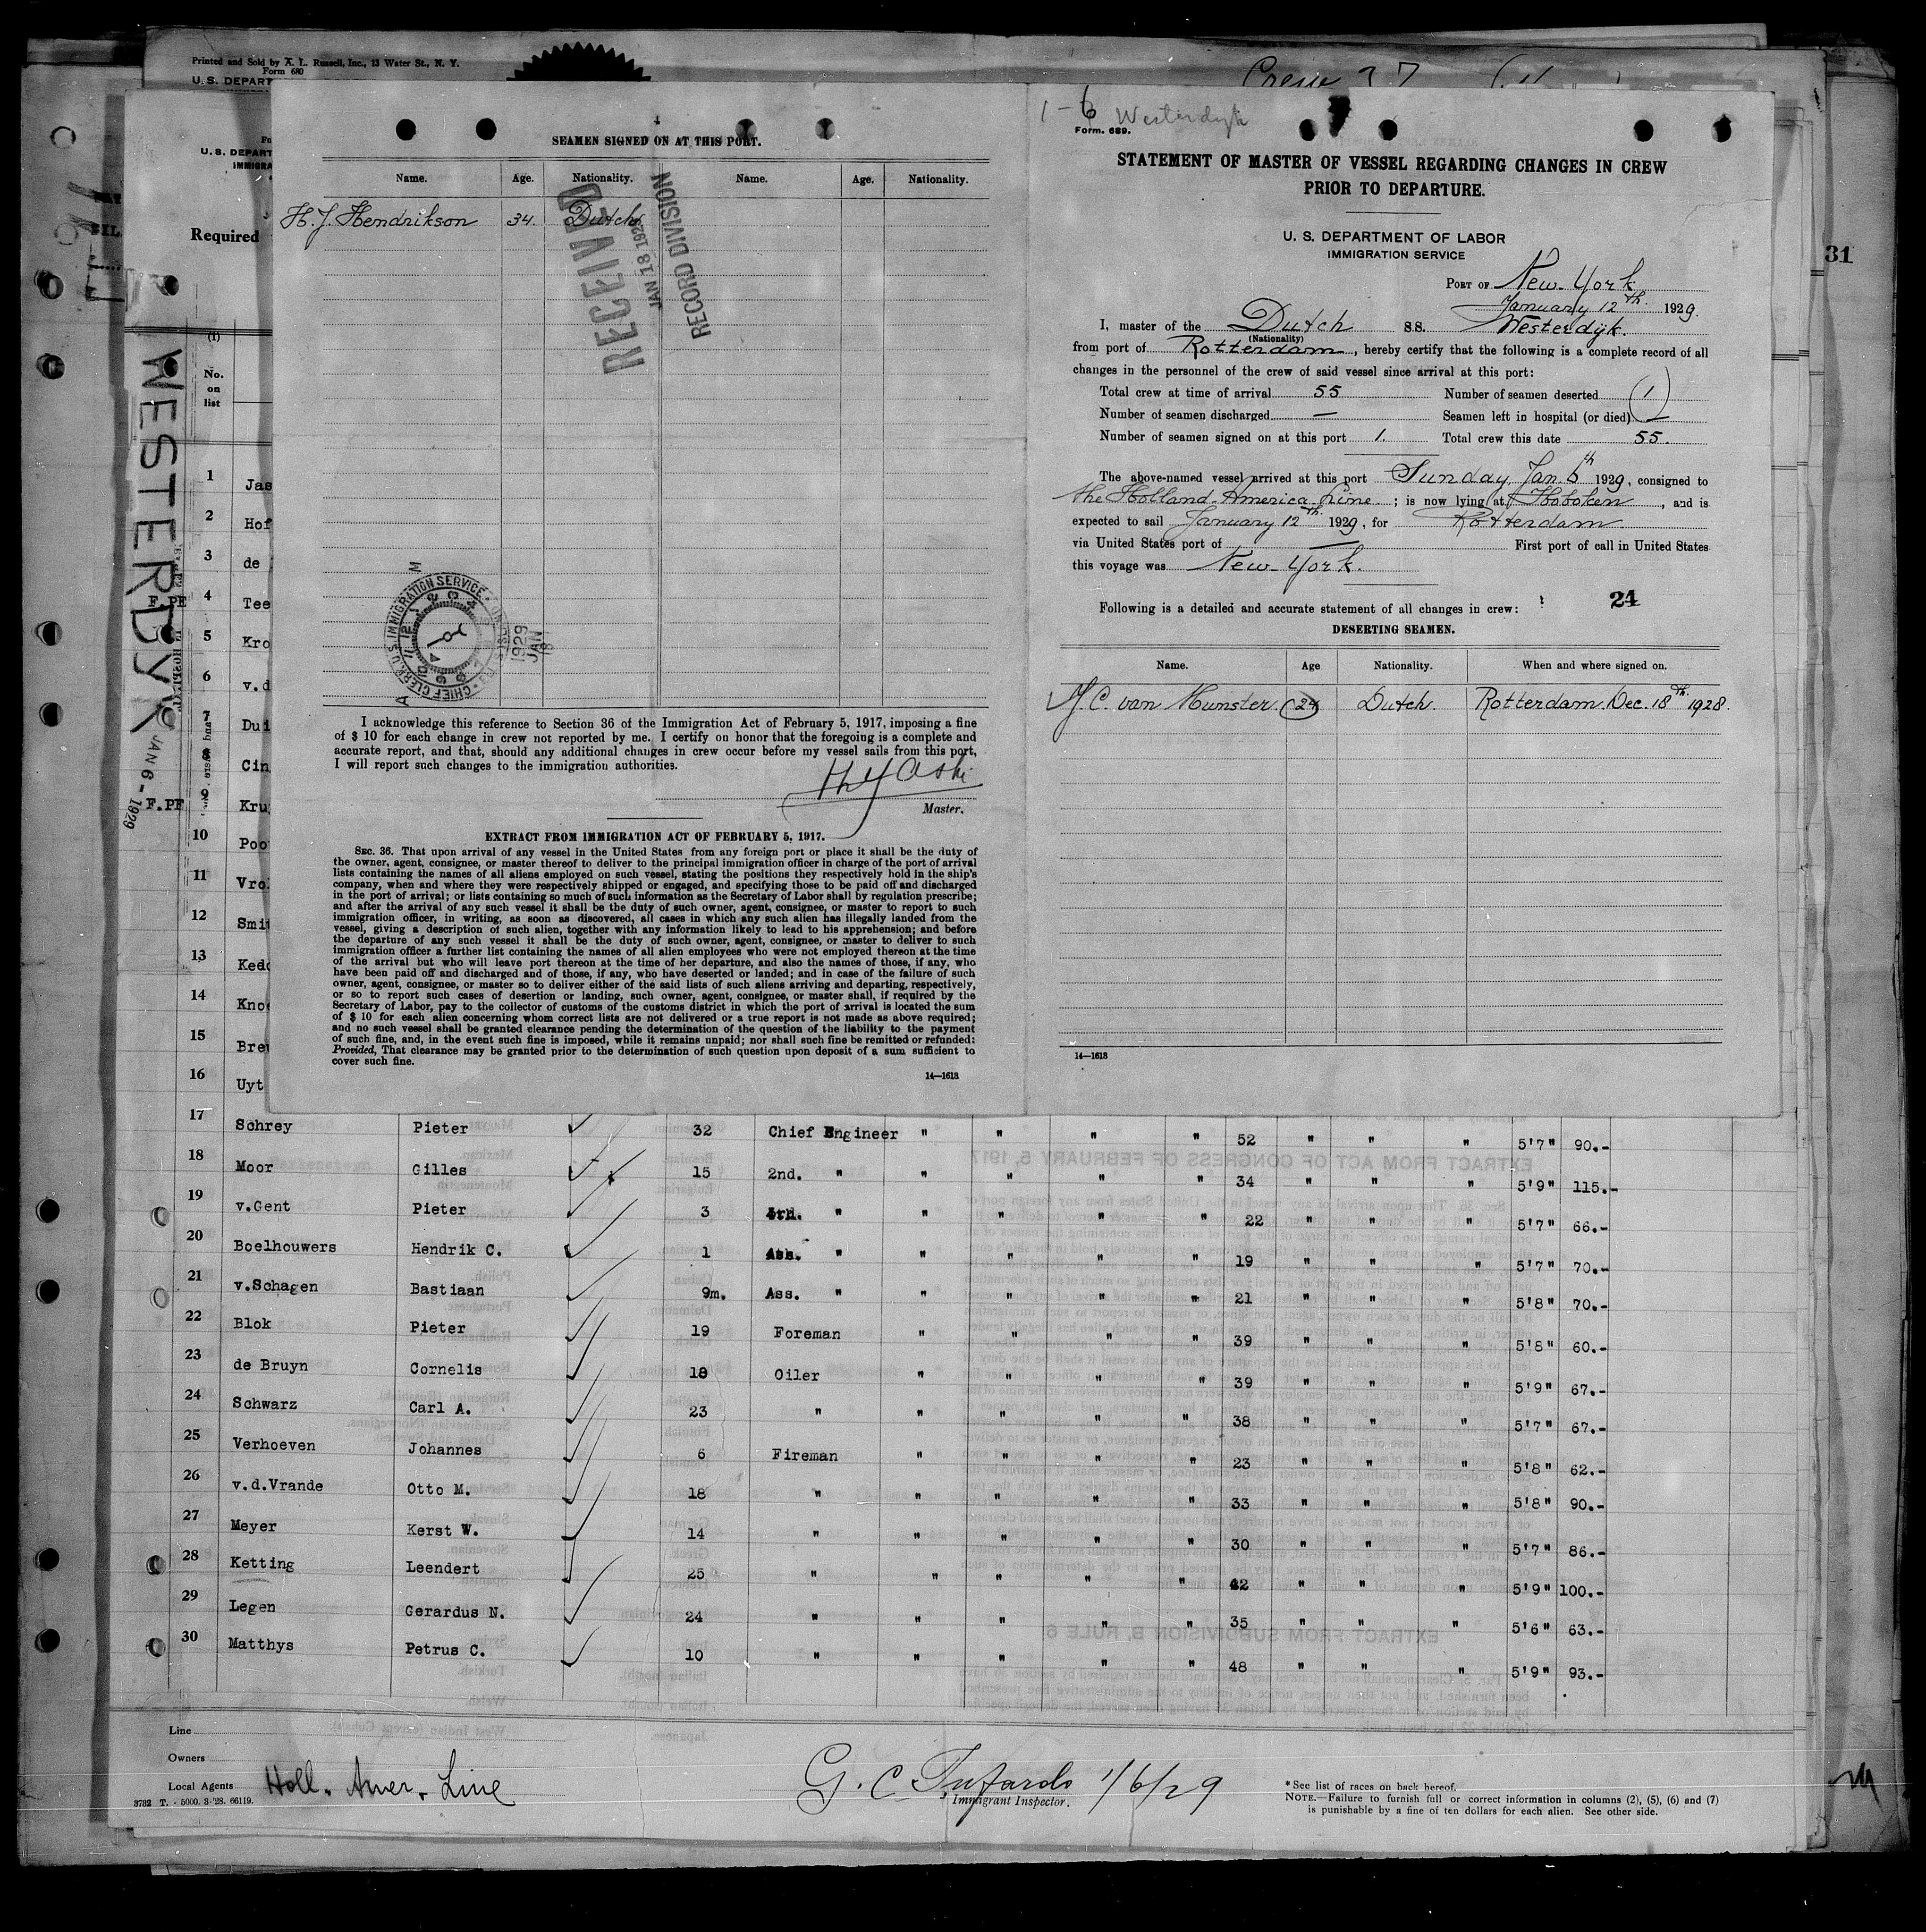 Printed and Sold by A. L. Russell, Inc., 13 Water St., N. Y.
Form 680
U. S. DEPART
Crew
U. S. DEPART
IMMIGRA
Required
31
WESTERDYK
JAN 6 - 1929
(1)
No.
on
list
SEAMEN SIGNED ON AT THIS PORT.
Name. Age. Nationality. Name. Age. Nationality.
H. J. Hendrikson 34. Dutch
RECEIVED
JAN 18 1929
RECORD DIVISION
CHIEF CLERK U.S. IMMIGRATION SERVICE
1929
JAN
18
I acknowledge this reference to Section 36 of the Immigration Act of February 5, 1917, imposing a fine
of $ 10 for each change in crew not reported by me. I certify on honor that the foregoing is a complete and
accurate report, and that, should any additional changes in crew occur before my vessel sails from this port,
I will report such changes to the immigration authorities.
Master.
EXTRACT FROM IMMIGRATION ACT OF FEBRUARY 5, 1917.
SEC. 36. That upon arrival of any vessel in the United States from any foreign port or place it shall be the duty of
the owner, agent, consignee, or master thereof to deliver to the principal immigration officer in charge of the port of arrival
lists containing the names of all aliens employed on such vessel, stating the positions they respectively hold in the ship's
company, when and where they were respectively shipped or engaged, and specifying those to be paid off and discharged
in the port of arrival; or lists containing so much of such information as the Secretary of Labor shall by regulation prescribe;
and after the arrival of any such vessel it shall be the duty of such owner, agent, consignee, or master to report to such
immigration officer, in writing, as soon as discovered, all cases in which any such alien has illegally landed from the
vessel, giving a description of such alien, together with any information likely to lead to his apprehension; and before
the departure of any such vessel it shall be the duty of such owner, agent, consignee, or master to deliver to such
immigration officer a further list containing the names of all alien employees who were not employed thereon at the time
of the arrival but who will leave port thereon at the time of her departure, and also the names of those, if any, who
have been paid off and discharged and of those, if any, who have deserted or landed; and in case of the failure of such
owner, agent, consignee, or master so to deliver either of the said lists of such aliens arriving and departing, respectively,
or so to report such cases of desertion or landing, such owner, agent, consignee, or master shall, if required by the
Secretary of Labor, pay to the collector of customs of the customs district in which the port of arrival is located the sum
of $ 10 for each alien concerning whom correct lists are not delivered or a true report is not made as above required;
and no such vessel shall be granted clearance pending the determination of the question of the liability to the payment
of such fine, and, in the event such fine is imposed, while it remains unpaid; nor shall such fine be remitted or refunded:
Provided, That clearance may be granted prior to the determination of such question upon deposit of a sum sufficient to
cover such fine.
14—1613
1-6 Westerdyk
Form. 689.
STATEMENT OF MASTER OF VESSEL REGARDING CHANGES IN CREW
PRIOR TO DEPARTURE.
U. S. DEPARTMENT OF LABOR
IMMIGRATION SERVICE
PORT OF New-York
January 12th. 1929.
I, master of the Dutch SS. Westerdyk.
(Nationality)
from port of Rotterdam, hereby certify that the following is a complete record of all
changes in the personnel of the crew of said vessel since arrival at this port:
Total crew at time of arrival 55 Number of seamen deserted (1)
Number of seamen discharged — Seamen left in hospital (or died) —
Number of seamen signed on at this port 1. Total crew this date 55.
The above-named vessel arrived at this port Sunday Jan. 6th 1929, consigned to
the Holland-America Line; is now lying at Hoboken, and is
expected to sail January 12th. 1929, for Rotterdam
via United States port of — First port of call in United States
this voyage was New-York.
Following is a detailed and accurate statement of all changes in crew: 24
DESERTING SEAMEN.
Name. Age Nationality. When and where signed on.
J. C. van Munster. 24 Dutch. Rotterdam. Dec. 18th. 1928.
14—1613
1 Jas
2 Hof
3 de
F.PF 4 Tee
5 Kro
6 v.d
7 Dui
8 Cin
F.PF 9 Kru
10 Poo
11 Vro
12 Smi
13 Ked
14 Kno
15 Bre
16 Uyt
17 Schrey Pieter 32 Chief Engineer " " " " 52 " " " 5'7" 90.-
18 Moor Gilles 15 2nd. " " " " " 34 " " " 5'9" 115.-
19 v.Gent Pieter 3 " " " " " 22 " " " 5'7" 66.-
20 Boelhouwers Hendrik C. 1 Ass. " " " " " 19 " " " 5'7" 70.-
21 v.Schagen Bastiaan 9m. Ass. " " " " " 21 " " " 5'8" 70.-
22 Blok Pieter 19 Foreman " " " " 39 " " " 5'8" 60.-
23 de Bruyn Cornelis 18 Oiler " " " " 39 " " " 5'9" 67.-
24 Schwarz Carl A. 23 " " " " " 38 " " " 5'7" 67.-
25 Verhoeven Johannes 6 Fireman " " " " 23 " " " 5'8" 62.-
26 v.d.Vrande Otto M. 18 " " " " " 33 " " " 5'8" 90.-
27 Meyer Kerst W. 14 " " " " " 30 " " " 5'7" 86.-
28 Ketting Leendert 25 " " " " " 42 " " " 5'9" 100.-
29 Legen Gerardus N. 24 " " " " " 35 " " " 5'6" 63.-
30 Matthys Petrus C. 10 " " " " " 48 " " " 5'9" 93.-
Line
Owners
Local Agents Holl. Amer. Line
3732 T. - 5000. 3-'28. 66119.
1/6/29
Immigrant Inspector.
* See list of races on back hereof.
NOTE.—Failure to furnish full or correct information in columns (2), (5), (6) and (7)
is punishable by a fine of ten dollars for each alien. See other side.